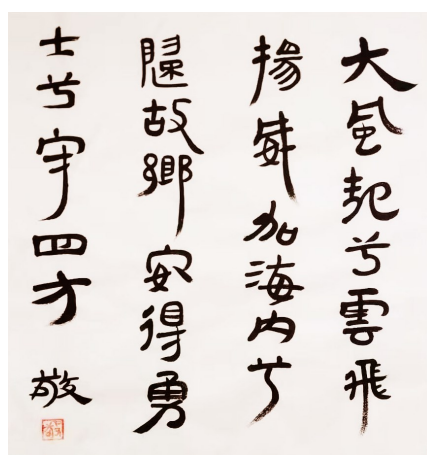 大風起兮雲飛
揚威加海内兮
歸故鄉安得勇
士兮守四方
敬